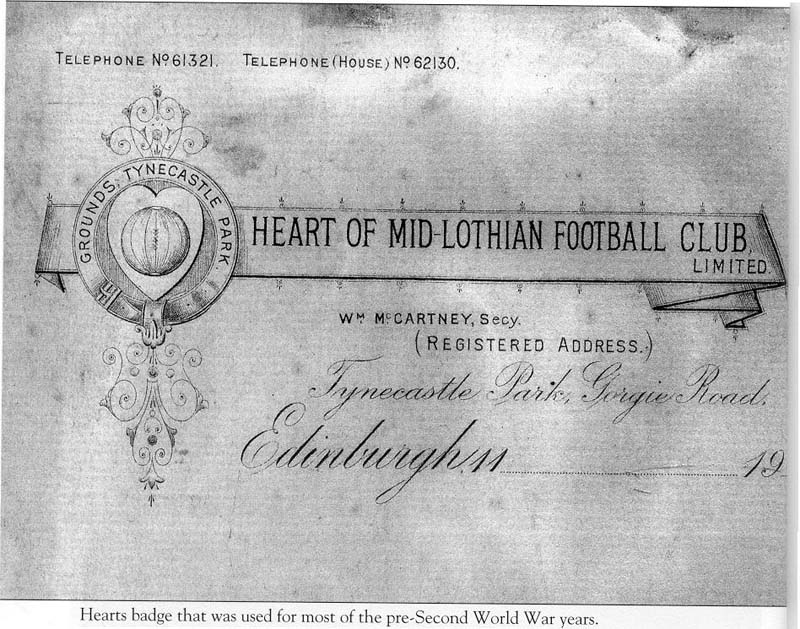 TELEPHONE Nº 61321. TELEPHONE (HOUSE) Nº 62130.
GROUNDS, TYNECASTLE PARK.
HEART OF MID-LOTHIAN FOOTBALL CLUB,
LIMITED.
Wᴹ MᶜCARTNEY, Secy.
(REGISTERED ADDRESS.)
Tynecastle Park, Gorgie Road,
Edinburgh, 11 19
Hearts badge that was used for most of the pre-Second World War years.